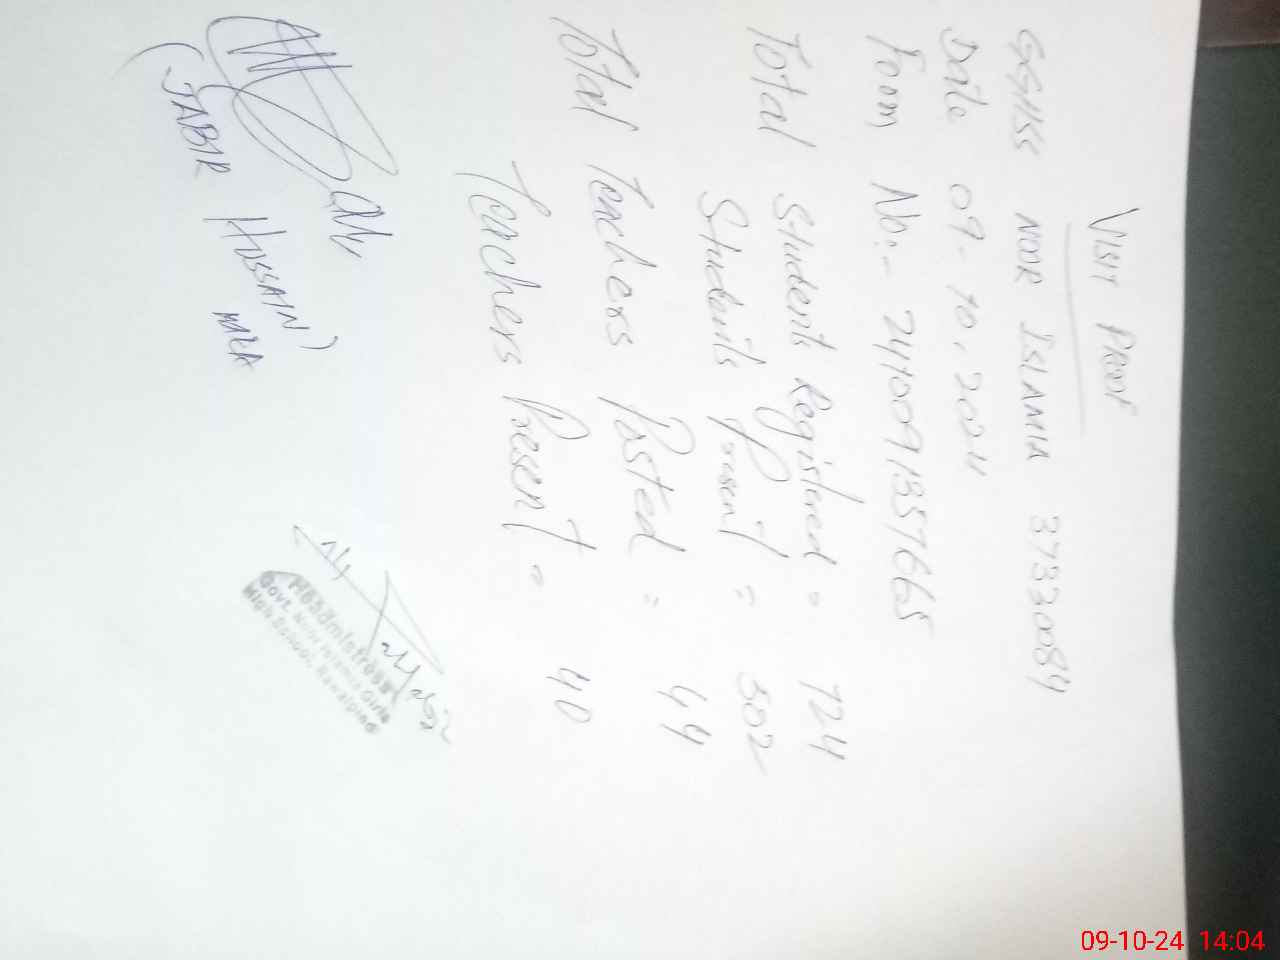 VISIT PROOF
GGHSS NOOR ISLAMIA 37330084
Date 09-10.2024
Form No:- 241009135765
Total Students Registered = 724
Students Present = 502
Total Teachers Posted = 44
Teachers Present = 40
(JABIR HUSSAIN)
MEA
Headmistress
Govt. Noor Islamia Girls
High School, Rawalpindi
09-10-24 14:04